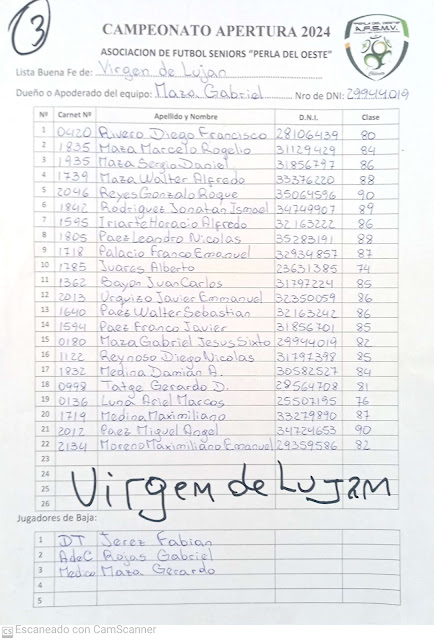 3
CAMPEONATO APERTURA 2024
ASOCIACION DE FUTBOL SENIORS "PERLA DEL OESTE"
A.F.S.M.V.
Lista Buena Fe de: Virgen de Lujan
Dueño o Apoderado del equipo: Maza Gabriel Nro de DNI: 29944019
Nº Carnet Nº Apellido y Nombre D.N.I. Clase
1 0420 Rivero Diego Francisco 28106439 80
2 1835 Maza Marcelo Rogelio 31129429 84
3 1935 Maza Sergio Daniel 31856797 86
4 1739 Maza Walter Alfredo 33376220 88
5 2046 Reyes Gonzalo Roque 35064596 90
6 1842 Rodriguez Jonatan Ismael 34749907 89
7 1595 Iriarte Horacio Alfredo 32163222 86
8 1805 Paez Leandro Nicolas 35283191 88
9 1718 Palacio Franco Emanuel 32934857 87
10 1785 Juares Alberto 23631385 74
11 1362 Bayon Juan Carlos 31797224 85
12 2013 Urquizo Javier Emmanuel 32350059 86
13 1640 Paez Walter Sebastian 32163242 86
14 1594 Paez Franco Javier 31856701 85
15 0180 Maza Gabriel Jesus Sixto 29944019 82
16 1122 Reynoso Diego Nicolas 31797398 85
17 1832 Medina Damián A. 30582527 84
18 0998 Tatge Gerardo D. 28564708 81
19 0136 Luna Ariel Marcos 25507195 76
20 1719 Medina Maximiliano 33279890 87
21 2012 Paez Miguel Angel 34724653 90
22 2134 Moreno Maximiliano Emanuel 29359586 82
23
24
25
26
Virgen de Lujan
Jugadores de Baja:
1 DT Jerez Fabian
2 AdeC Rojas Gabriel
3 Medico Maza Gerardo
4
5
CS Escaneado con CamScanner